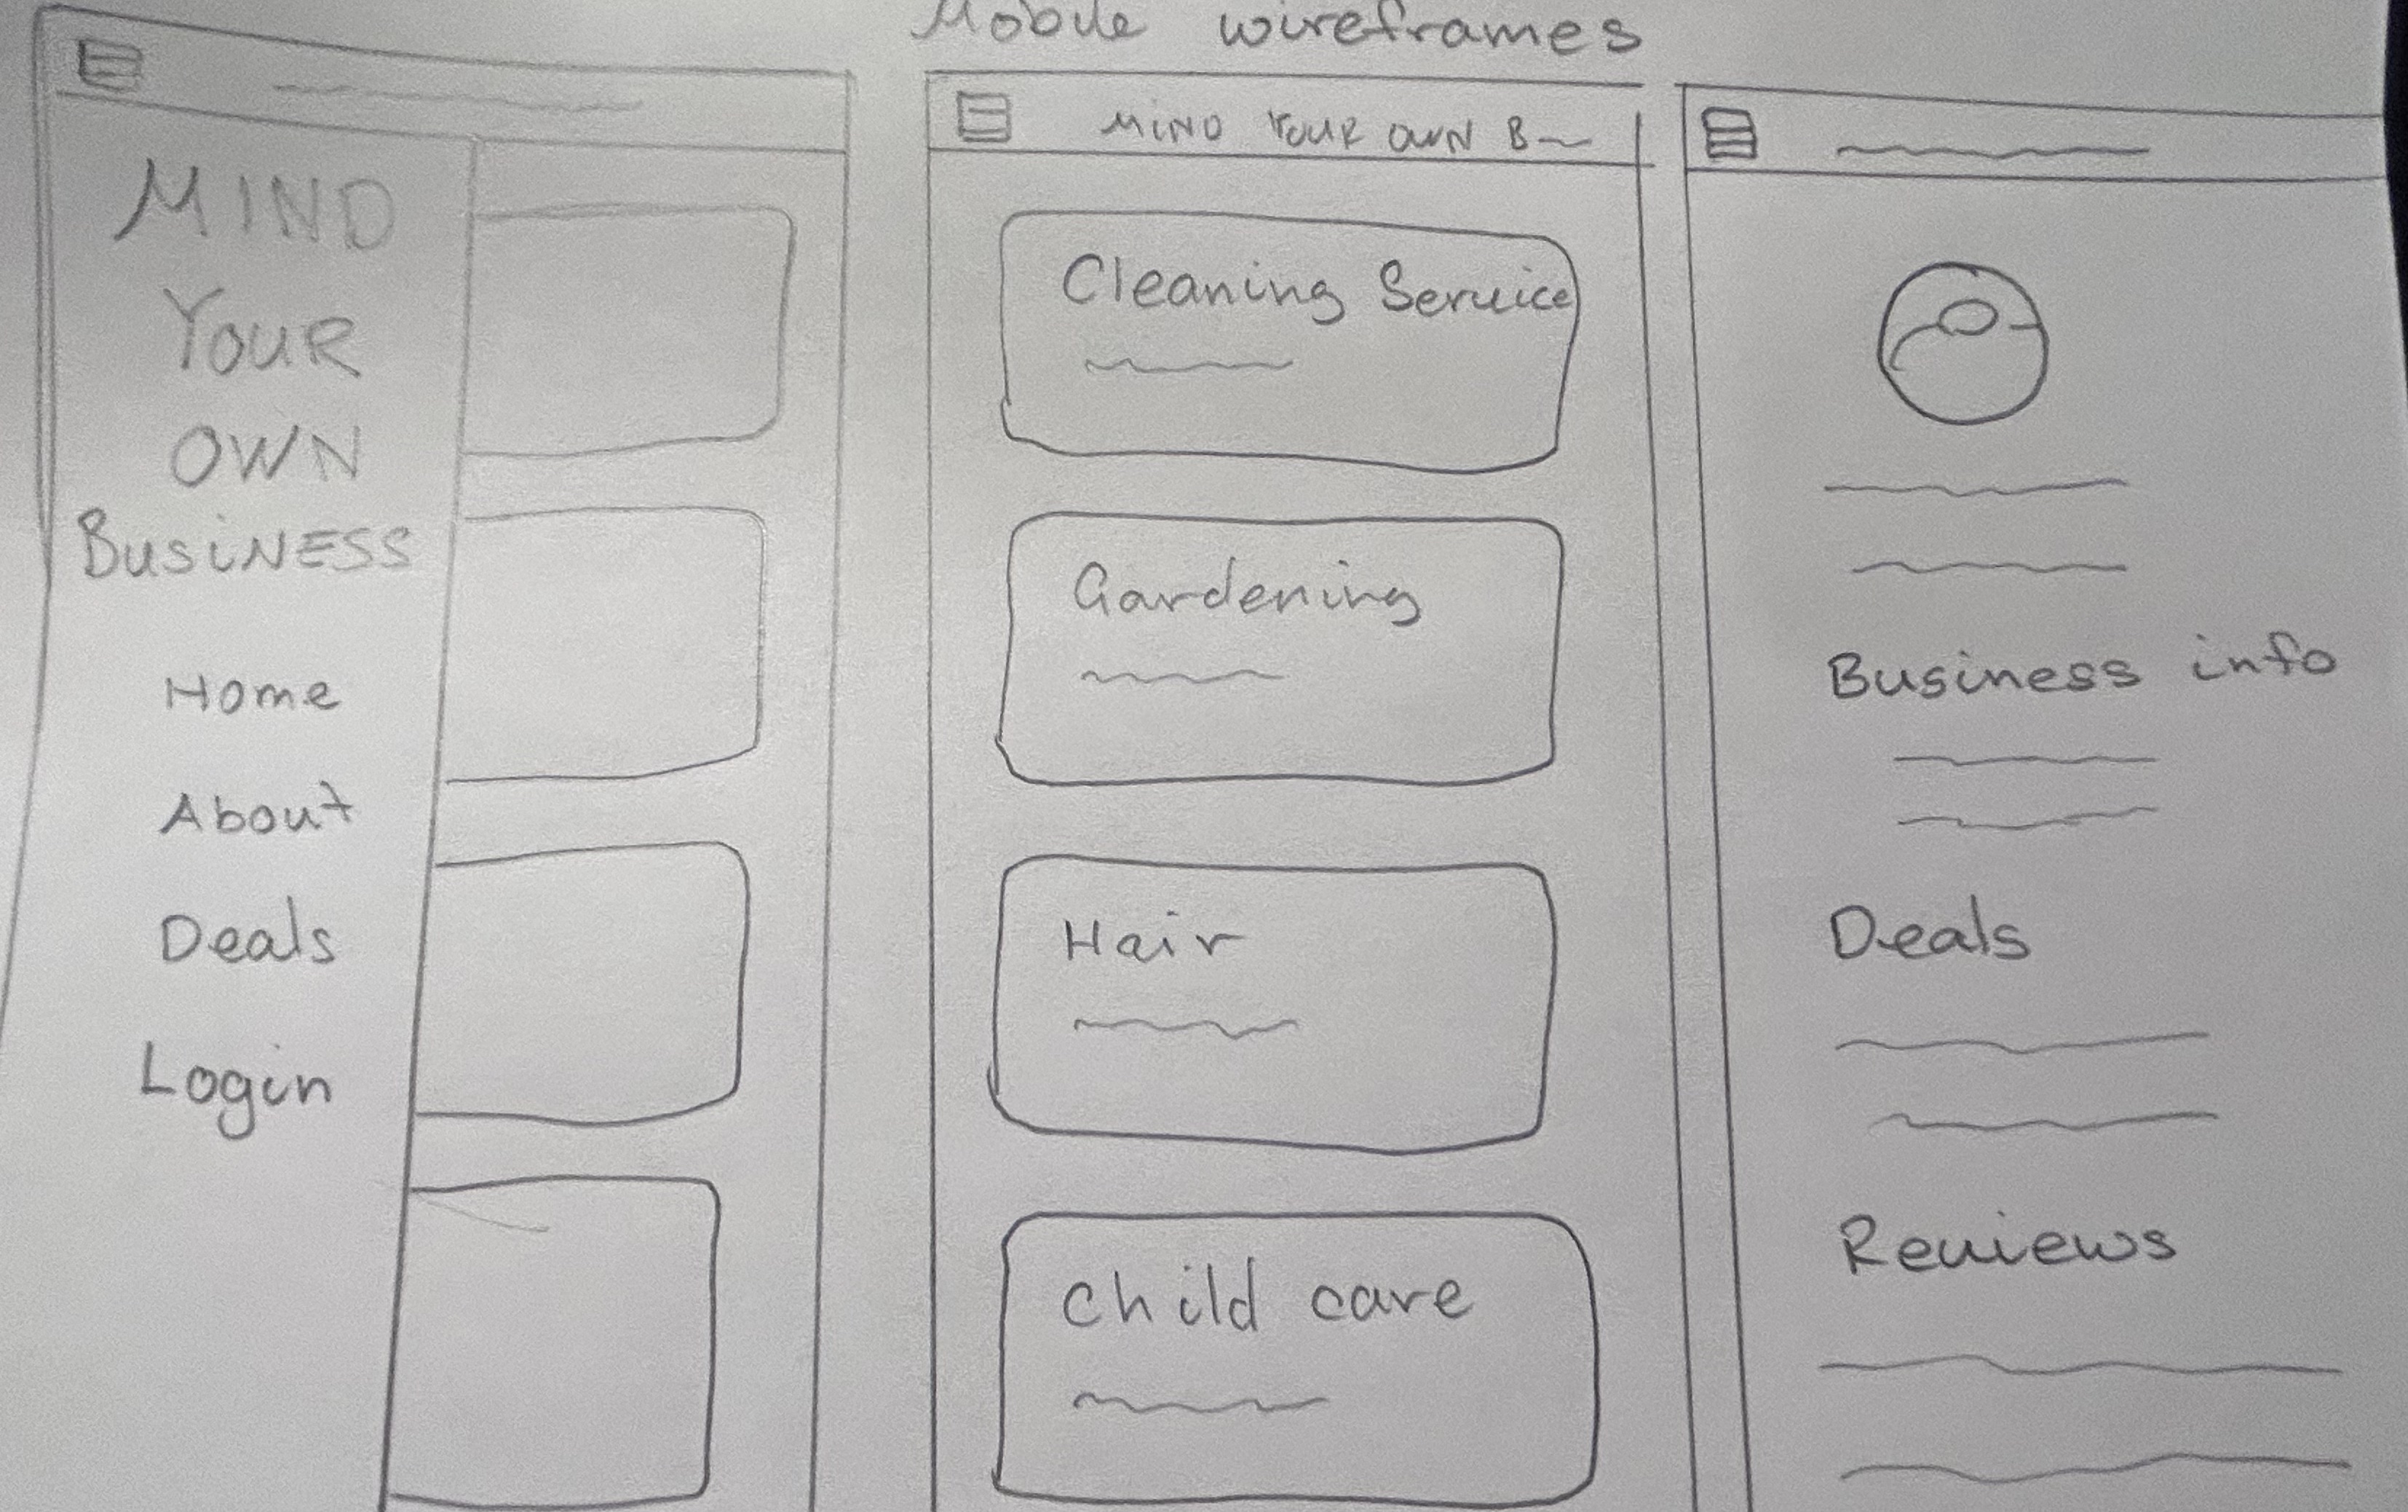 Mobile wireframes
MIND
YOUR
OWN
BUSINESS
Home
About
Deals
Login
MIND YOUR OWN B
Cleaning Service
Gardening
Hair
Child care
Business info
Deals
Reviews